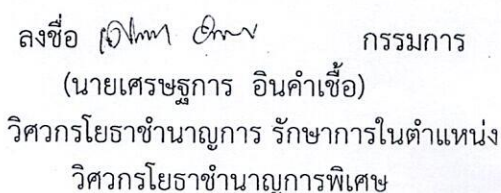 ลงชื่อ กรรมการ
(นายเศรษฐการ อินคำเชื้อ)
วิศวกรโยธาชำนาญการ รักษาการในตำแหน่ง
วิศวกรโยธาชำนาญการพิเศษ